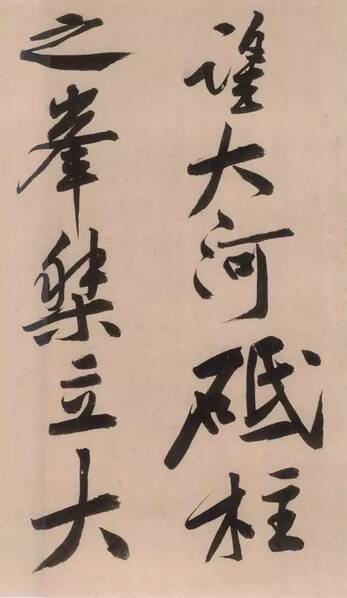 誰大河砥柱
之峯桀立大